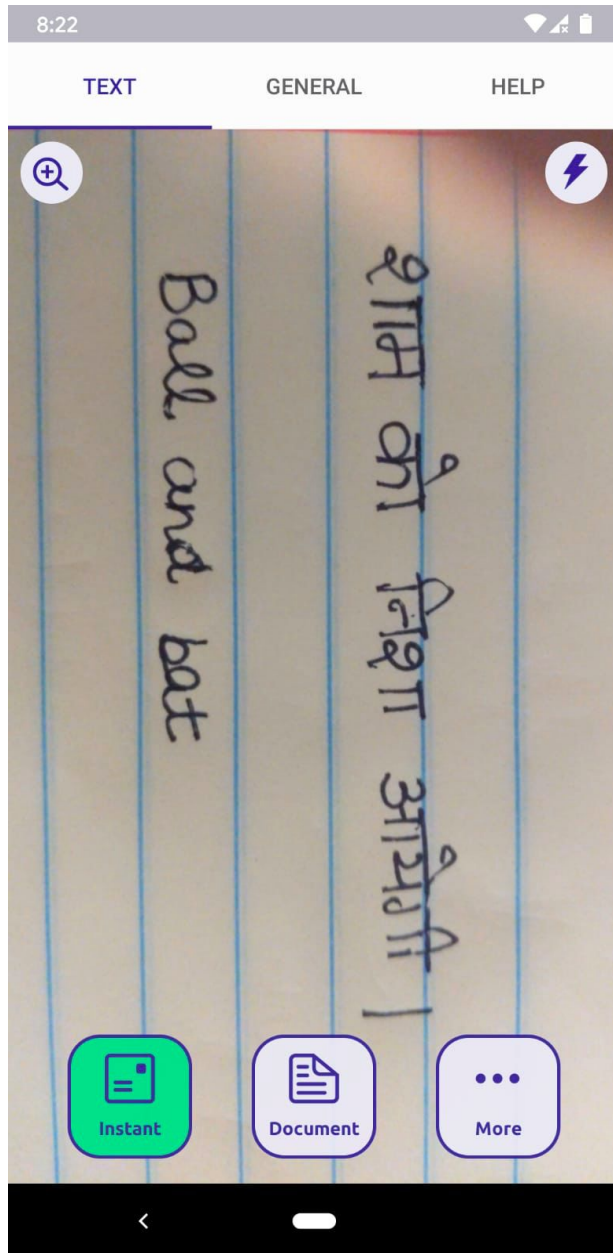 8:22
TEXT GENERAL HELP
शाम को निशा आयेगी।
Ball and bat
Instant Document More